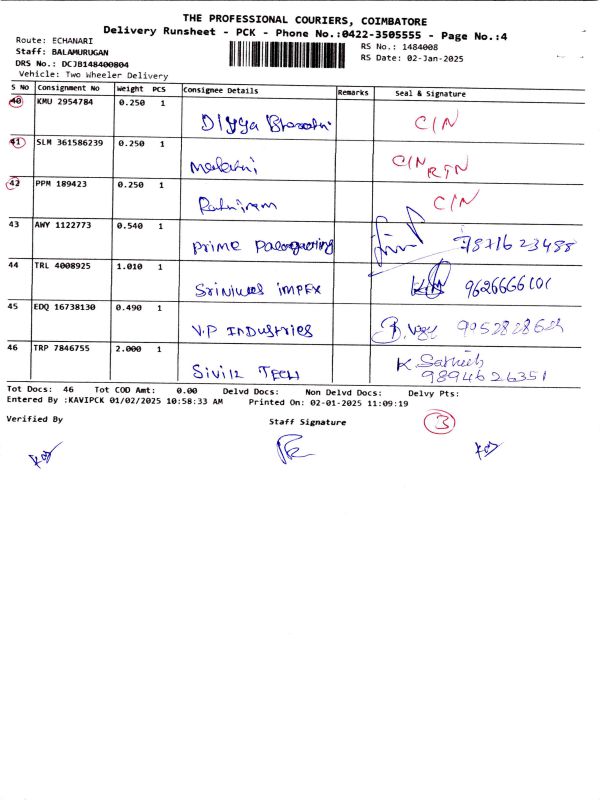 THE PROFESSIONAL COURIERS, COIMBATORE
Delivery Runsheet - PCK - Phone No.:0422-3505555 - Page No.:4
Route: ECHANARI
RS No.: 1484008
Staff: BALAMURUGAN
RS Date: 02-Jan-2025
DRS No.: DCJB148400804
Vehicle: Two Wheeler Delivery
S No Consignment No Weight PCS Consignee Details Remarks Seal & Signature
40 KMU 2954784 0.250 1 C/N
41 SLM 361586239 0.250 1 C/N
RTN
42 PPM 189423 0.250 1 C/N
43 AWY 1122773 0.540 1 Prime 7871623488
44 TRL 4008925 1.010 1 IMPEX 9626666101
45 EDQ 16738130 0.490 1 V.P INDUSTRIES
46 TRP 7846755 2.000 1 TECH K. Sathish
9894626351
Tot Docs: 46 Tot COD Amt: 0.00 Delvd Docs: Non Delvd Docs: Delvy Pts:
Entered By :KAVIPCK 01/02/2025 10:58:33 AM Printed On: 02-01-2025 11:09:19
Verified By Staff Signature 3